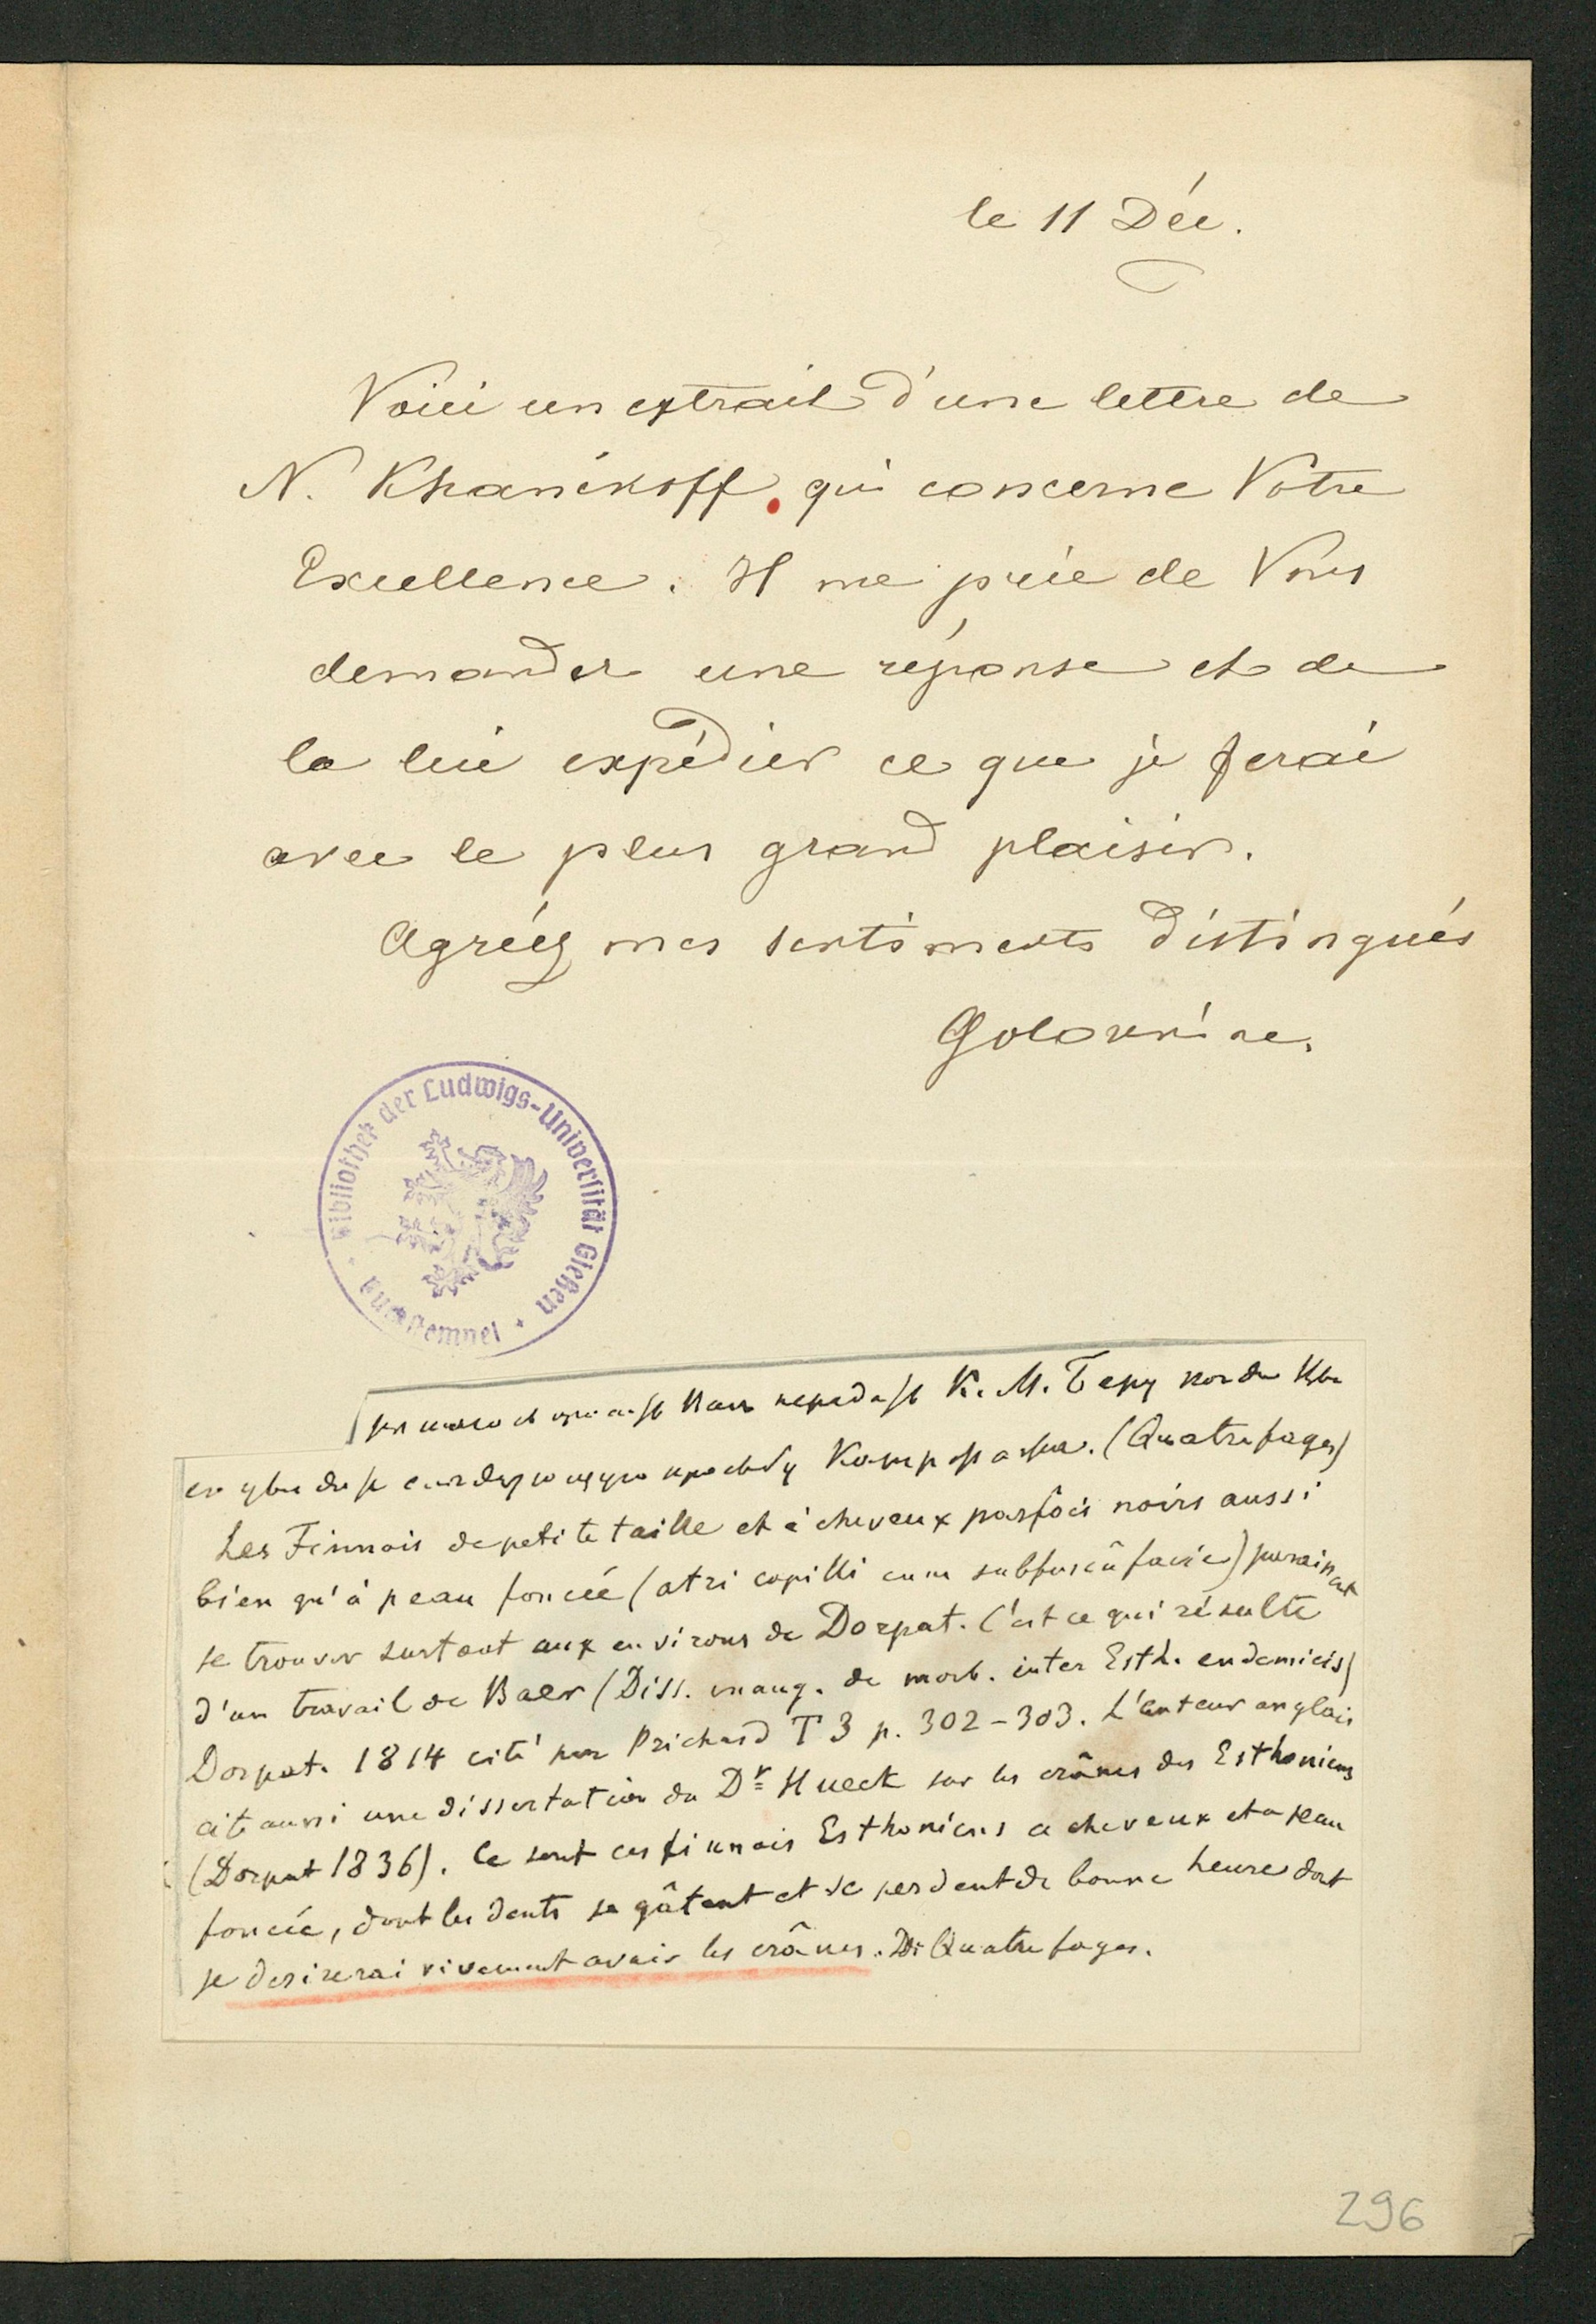 le 11 Déc.
Voici un extrait d'une lettre de
N. Khanikoff qui concerne Votre
Excellence. Il me prie de Vous
demander une réponse et de
la lui expédier ce que je ferai
avec le plus grand plaisir.
Agréez mes sentiments distingués
Golovnine.
Bibliothek der Ludwigs-Universität Gießen
передать К. М. Беру когда Вы
его увидите следующую просьбу Катрфажа. (Quatrefages)
Les Finnois de petite taille et à cheveux parfois noirs aussi
bien qu'à peau foncée (atri capilli cum subfuscâ facie) paraissent
se trouver surtout aux environs de Dorpat. C'est ce qui résulte
d'un travail de Baer (Diss. inaug. de morb. inter Esth. endemicis)
Dorpat. 1814 cité par Prichard T 3 p. 302-303. L'auteur anglais
cite aussi une dissertation du Dr Hueck sur les crânes des Esthoniens
(Dorpat 1836). Ce sont ces finnois Esthoniens a cheveux et a peau
foncée, dont les dents se gâtent et se perdent de bonne heure dont
je desirerai vivement avoir les crânes. De Quatrefages.
296